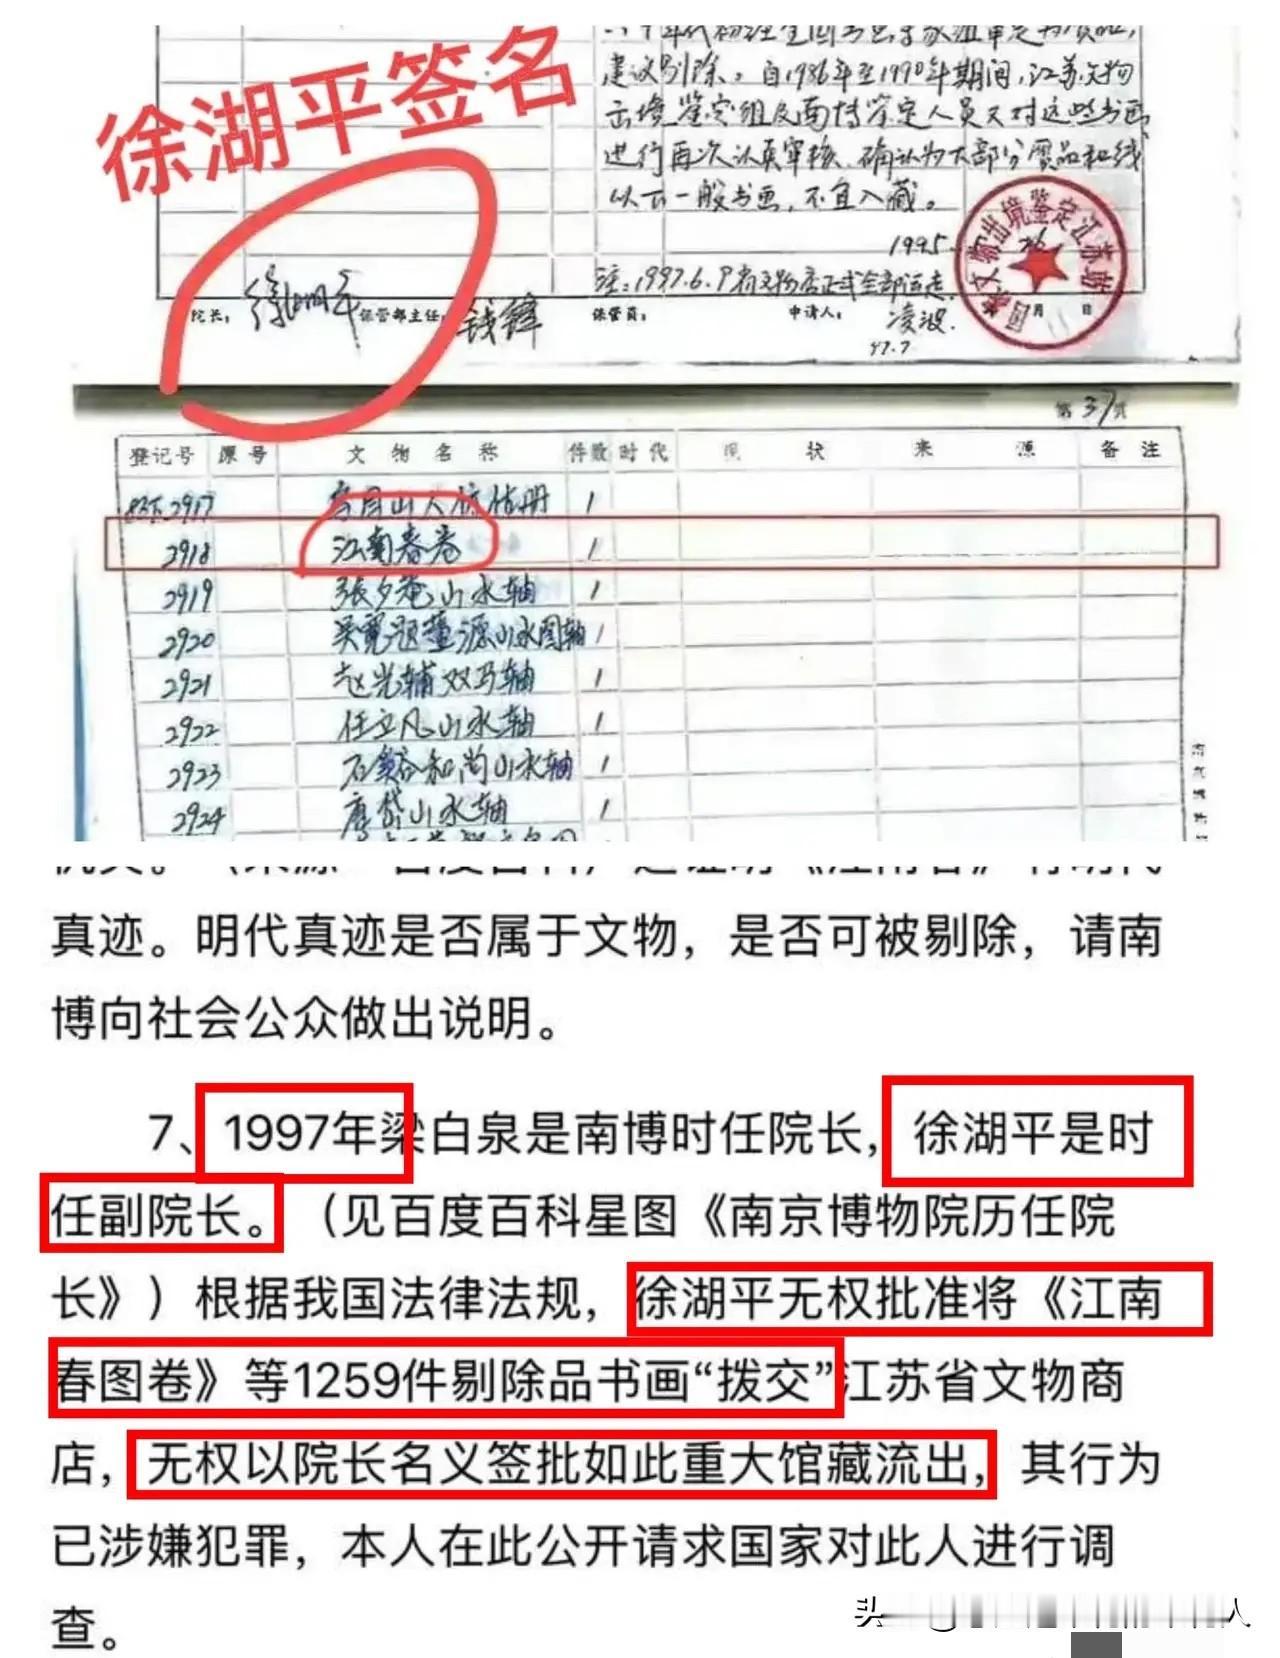 徐湖平签名
建议剔除。自1986年至1990年期间,江苏文物
出境鉴定组及南博鉴定人员又对这些书画
进行再次认真审核、确认为大部分赝品和线
以下一般书画,不宜入藏。
1995.
注:1997.6.9有文物店正式全部运走.
院长: 徐湖平 保管部主任: 钱锋 保管员: 申请人: 凌波. 月 日
97.7
文物出境鉴定江苏站
第37页
登记号 原号 文物名称 件数 时代 现状 来源 备注
2917 1
2918 江南春卷 1
2919 张夕庵山水轴 1
2920 吴宽题董源山水图轴 1
2921 赵光辅双马轴 1
2922 任立凡山水轴 1
2923 石溪和尚山水轴 1
2924 唐岱山水轴 1
真迹。明代真迹是否属于文物,是否可被剔除,请南
博向社会公众做出说明。
7、1997年梁白泉是南博时任院长,徐湖平是时
任副院长。(见百度百科星图《南京博物院历任院
长》)根据我国法律法规,徐湖平无权批准将《江南
春图卷》等1259件剔除品书画“拨交”江苏省文物商
店,无权以院长名义签批如此重大馆藏流出,其行为
已涉嫌犯罪,本人在此公开请求国家对此人进行调
查。